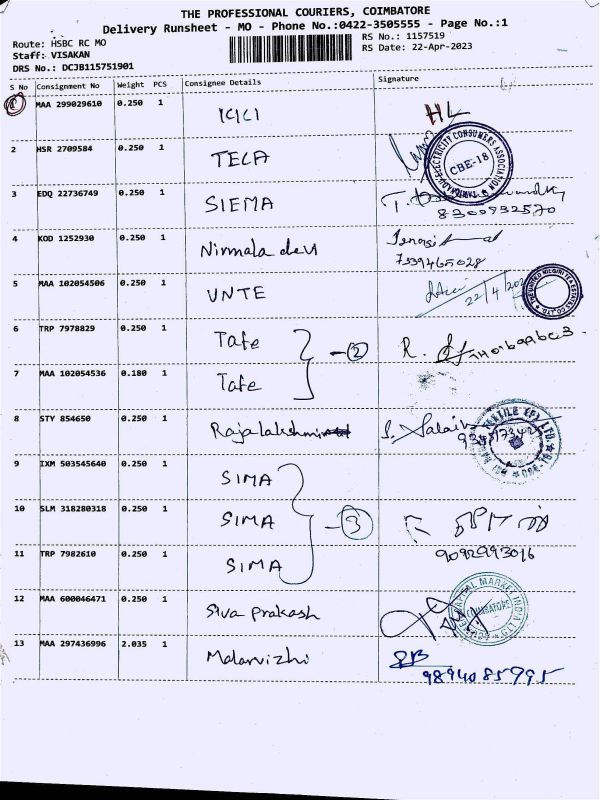 THE PROFESSIONAL COURIERS, COIMBATORE
Delivery Runsheet - MO - Phone No.:0422-3505555 - Page No.:1
Route: HSBC RC MO
RS No.: 1157519
Staff: VISAKAN
RS Date: 22-Apr-2023
DRS No.: DCJB115751901
S No Consignment No Weight PCS Consignee Details Signature
1 MAA 299029610 0.250 1 ICICI HL
2 HSR 2709584 0.250 1 TECA
ELECTRICITY CONSUMERS ASSOCIATION
CBE-18
3 EDQ 22736749 0.250 1 SIEMA T.
8300932570
4 KOD 1252930 0.250 1 Nirmala devi
7339465028
5 MAA 102054506 0.250 1 UNTE 22/4/202
6 TRP 7978829 0.250 1 Tafe - 2 R.
7 MAA 102054536 0.180 1 Tafe
8 STY 854650 0.250 1 Rajalakshmi S.
9 IXM 503545640 0.250 1 SIMA
10 SLM 318280318 0.250 1 SIMA - 3
11 TRP 7982610 0.250 1 SIMA 9092993016
12 MAA 600046471 0.250 1 Siva prakash
CAPITAL MARKET INDIA LTD
COIMBATORE
13 MAA 297436996 2.035 1 Malarvizhi
9894085995